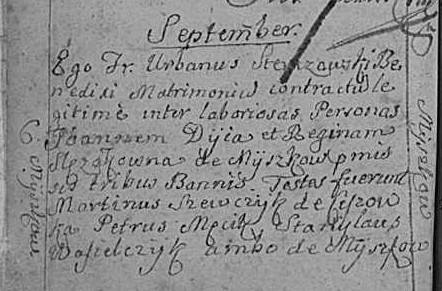 September.
Ego Fr. Urbanus Be-
nedixi Matrimonium contractu le
gitimè inter laboriosas Personas
6. Joannem Dyia et Reginam
de Myszkow pmis
sis tribus Bannis Testes fuerunt
Martinus Szewczyk de
ka Petrus Stanylaus
Wasielczyk ambo de Myszkow
Myszkow
Myszkow